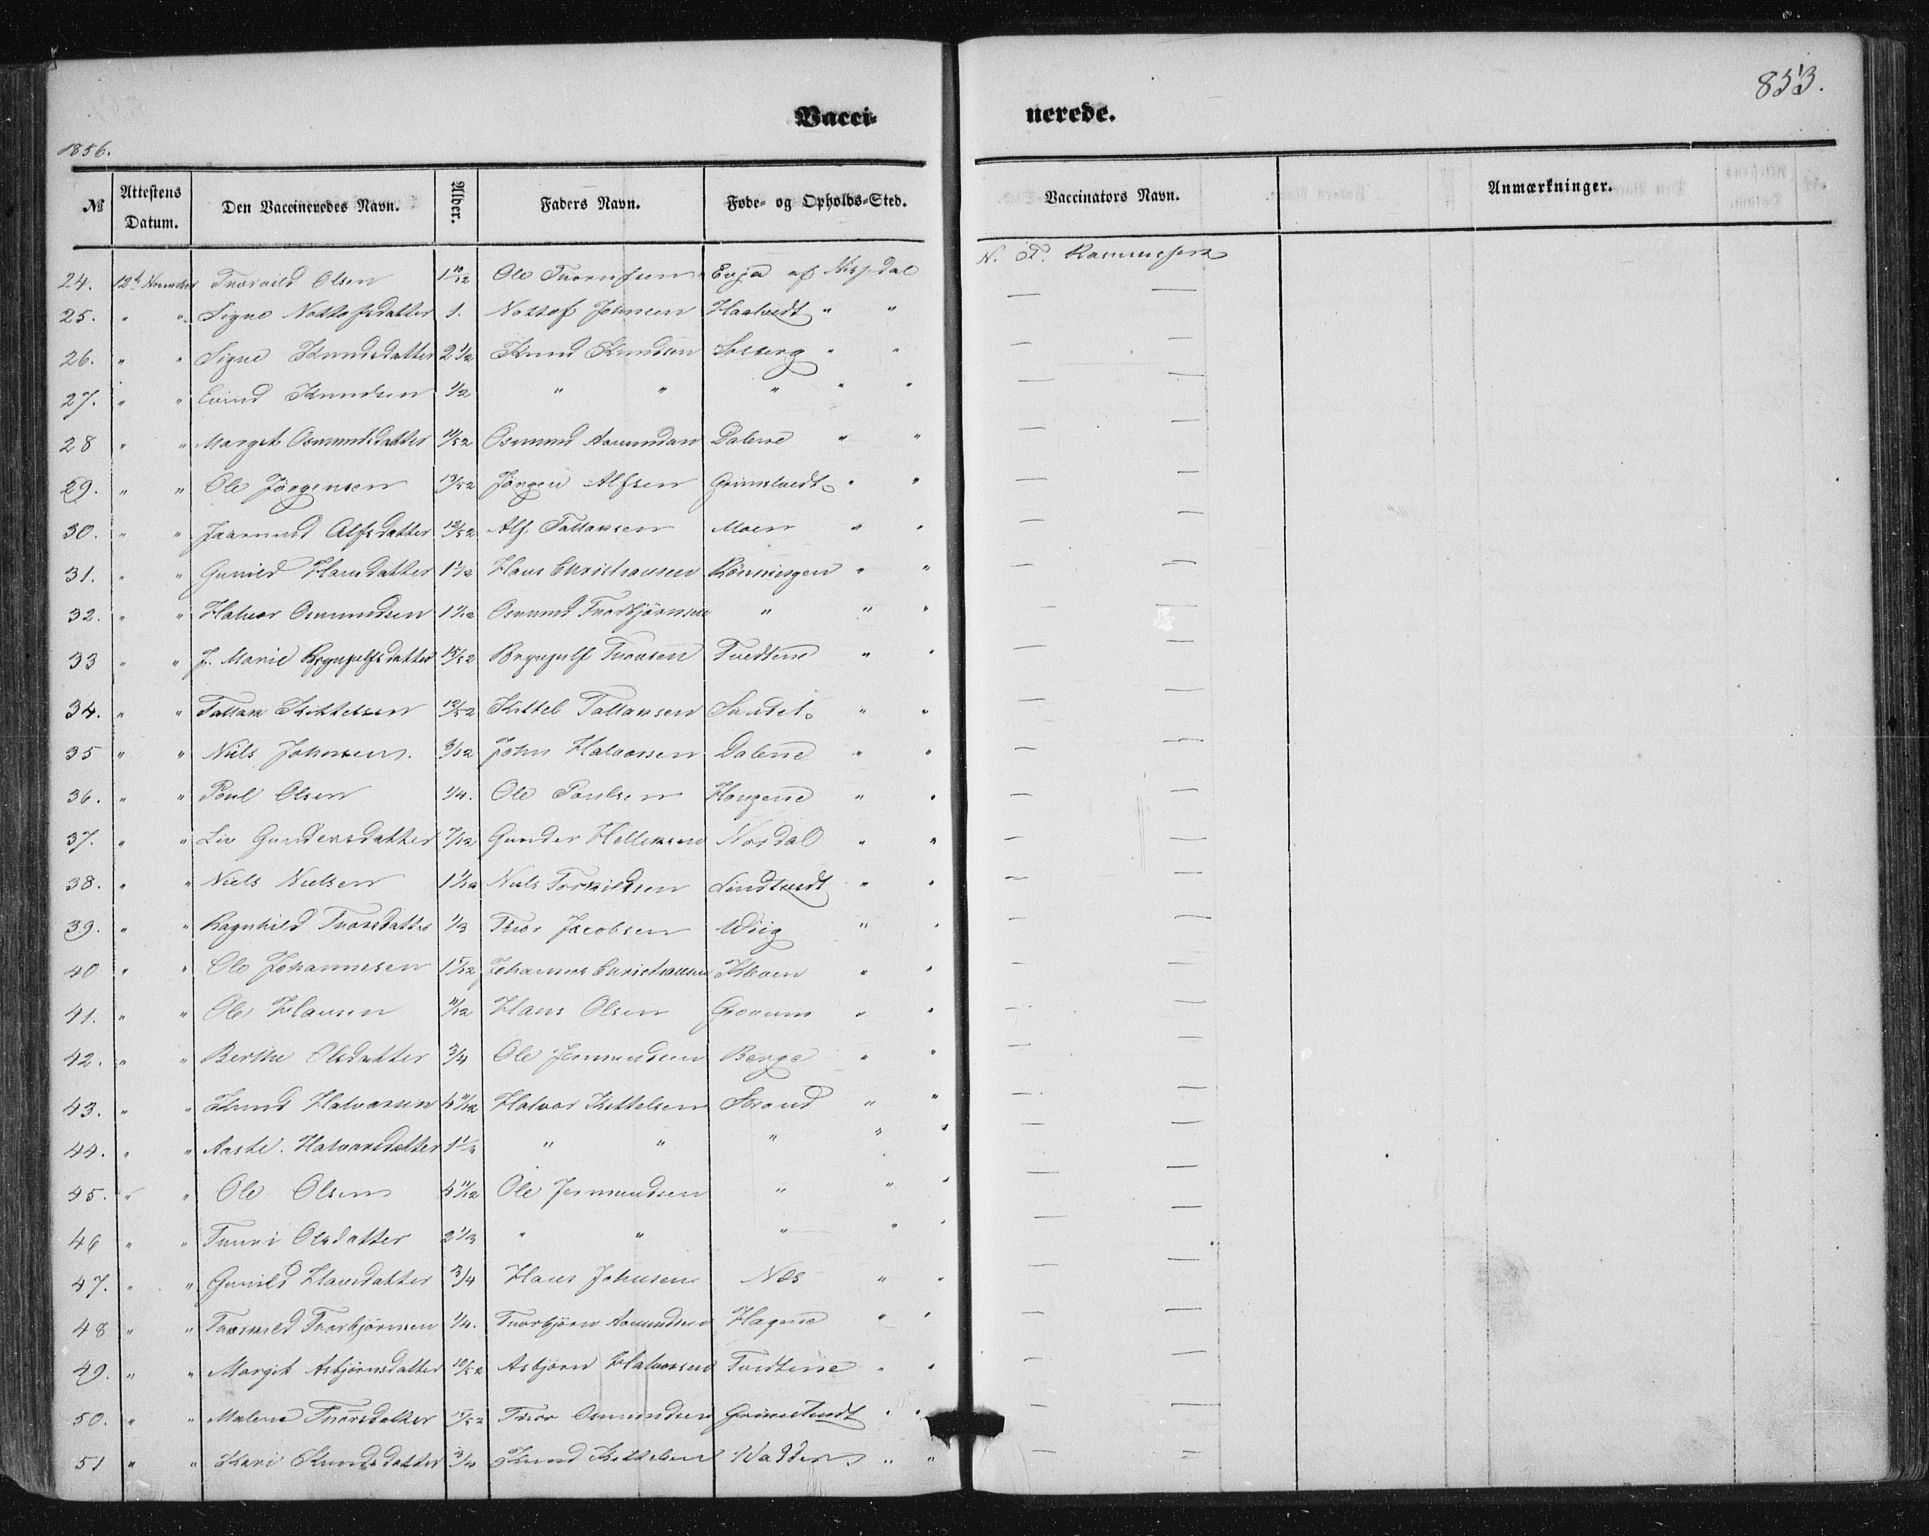 853.
Vaccinerede.
1856.
№ Attestens Datum. Den Vaccineredes Navn. Alder. Faders Navn. Føde- og Opholds-Sted. Vaccinators Navn. Anmærkninger.
24. 12te November Olsen 1 10/12 Ole Evja af Nissedal N. T. Rasmussen
25. " " Signe Nottofsdatter 1. Nottof Johnsen Haatvedt " " — —
26. " " Signe Knudsdatter 2 1/2 Knud Knudsen Solberg " " — —
27. " " Eivind Knudsen 1/2 " " " " " — —
28 " " Margit Osmundsdatter 11/52 Osmund Aamundsen Dalene " " — —
29. " " Ole Jörgensen 13/52 Jörgen Alfsen Grimstvedt " " — —
30. " " Alfsdatter 12/52 Alf Tallaksen Moen " " — —
31. " " Gunild Hansdatter 1 1/12 Hans Christiansen Rönningen " " — —
32. " " Halvor Osmundsen 1 1/12 Osmund Thorbjörnsen " " " — —
33 " " J. Marie Brynjulfsdatter 15/52 Brynjulf Thorsen Tvedtene " " — —
34. " " Tallak Kittelsen 12/52 Kittel Tallaksen " " — —
35 " " Niels Johnsen. 9/12 John Halvorsen Dalene " " — —
36. " " Poul Olsen 1/4. Ole Poulsen Haugene " " — —
37. " " Liv Gundersdatter 7/12 Gunder Nordal " " — —
38. " " Niels Nielsen 1 1/12 Niels Torkildsen Lindtvedt " " — —
39. " " Ragnhild Thorsdatter 1/3 Thor Jacobsen Wiig " " — —
40 " " Ole Johannesen 1 5/12 Johannes Christiansen " " — —
41. " " Ole Hansen 11/12 Hans Olsen Groven " " — —
42. " " Berthe Olsdatter 3/4 Ole Jermundsen Berge " " — —
43. " " Knud Halvorsen 4 11/12 Halvor Kittelsen Strand " " — —
44. " " Aaste Halvorsdatter 1 1/2 " " " " " — —
45. " " Ole Olsen 4 11/12 Ole Jermundsen " " " — —
46 " " Thuri Olsdatter 2 1/3 " " " " " — —
47. " " Gunild Hansdatter 3/4 Hans Johnsen Næs " " — —
48 " " Thorbjörnsen 1/4. Thorbjörn Aamundsen Hagene " " — —
49. " " Margit Asbjörnsdatter 10/52 Asbjörn Halvorsen Tvedtene " " — —
50. " " Malene Thorsdatter 15/52 Thor Osmundsen Grimstvedt " " — —
51 " " Kari Knudsdatter 3/4 Knud Kittelsen " " — "